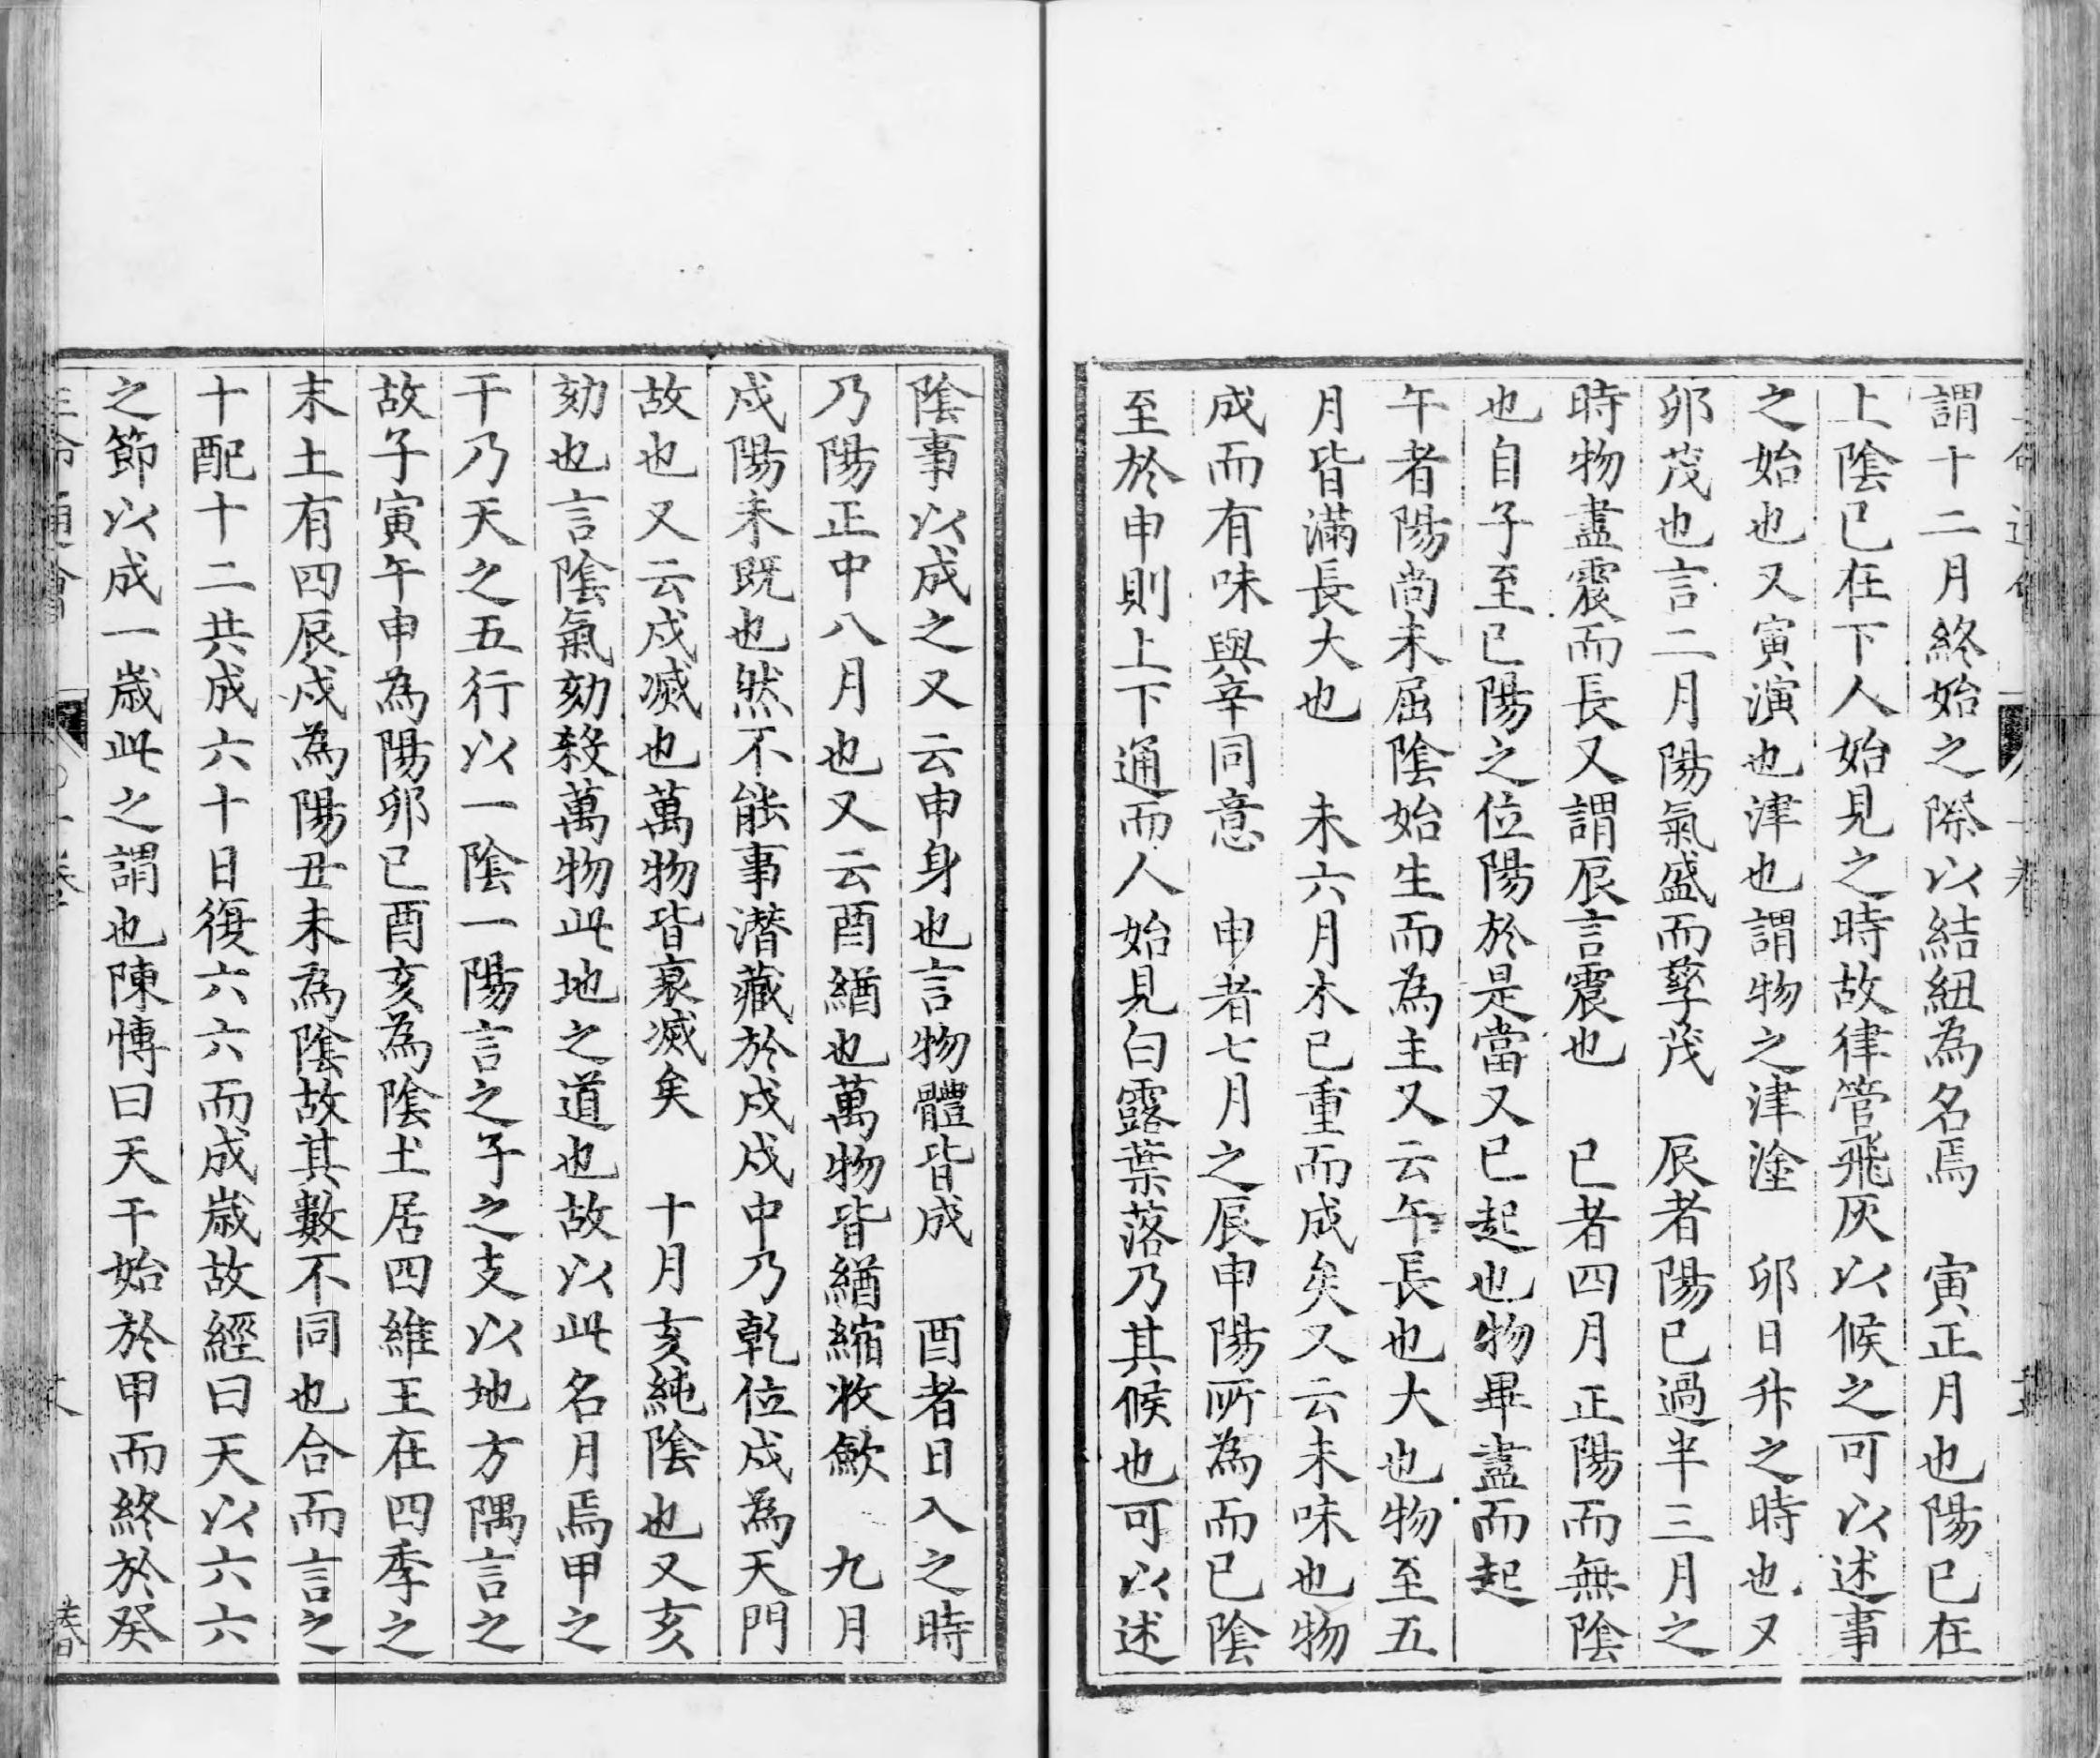 謂十二月終始之際以結紐為名焉　寅正月也陽已在
上陰已在下人始見之時故律管飛灰以候之可以述事
之始也又寅演也津也謂物之津塗　卯日升之時也又
卯茂也言二月陽氣盛而孳茂　辰者陽已過半三月之
時物盡震而長又謂辰言震也　巳者四月正陽而無陰
也自子至巳陽之位陽於是當又巳起也物畢盡而起
午者陽尚未屈陰始生而為主又云午長也大也物至五
月皆滿長大也　未六月木已重而成矣又云未味也物
成而有味與辛同意　申者七月之辰申陽所為而已陰
至於申則上下通而人始見白露葉落乃其候也可以述
陰事以成之又云申身也言物體皆成　酉者日入之時
乃陽正中八月也又云酉緧也萬物皆緧縮收斂　九月
戌陽未既也然不能事潛藏於戌戌中乃乾位戌為天門
故也又云戌滅也萬物皆衰滅矣　十月亥純陰也又亥
劾也言陰氣劾殺萬物此地之道也故以此名月焉甲之
干乃天之五行以一陰一陽言之子之支以地方隅言之
故子寅午申為陽卯巳酉亥為陰土居四維王在四季之
末土有四辰戌為陽丑未為陰故其數不同也合而言之
十配十二共成六十日復六六而成歲故經曰天以六六
之節以成一歲此之謂也陳慱曰天干始於甲而終於癸
三命通會